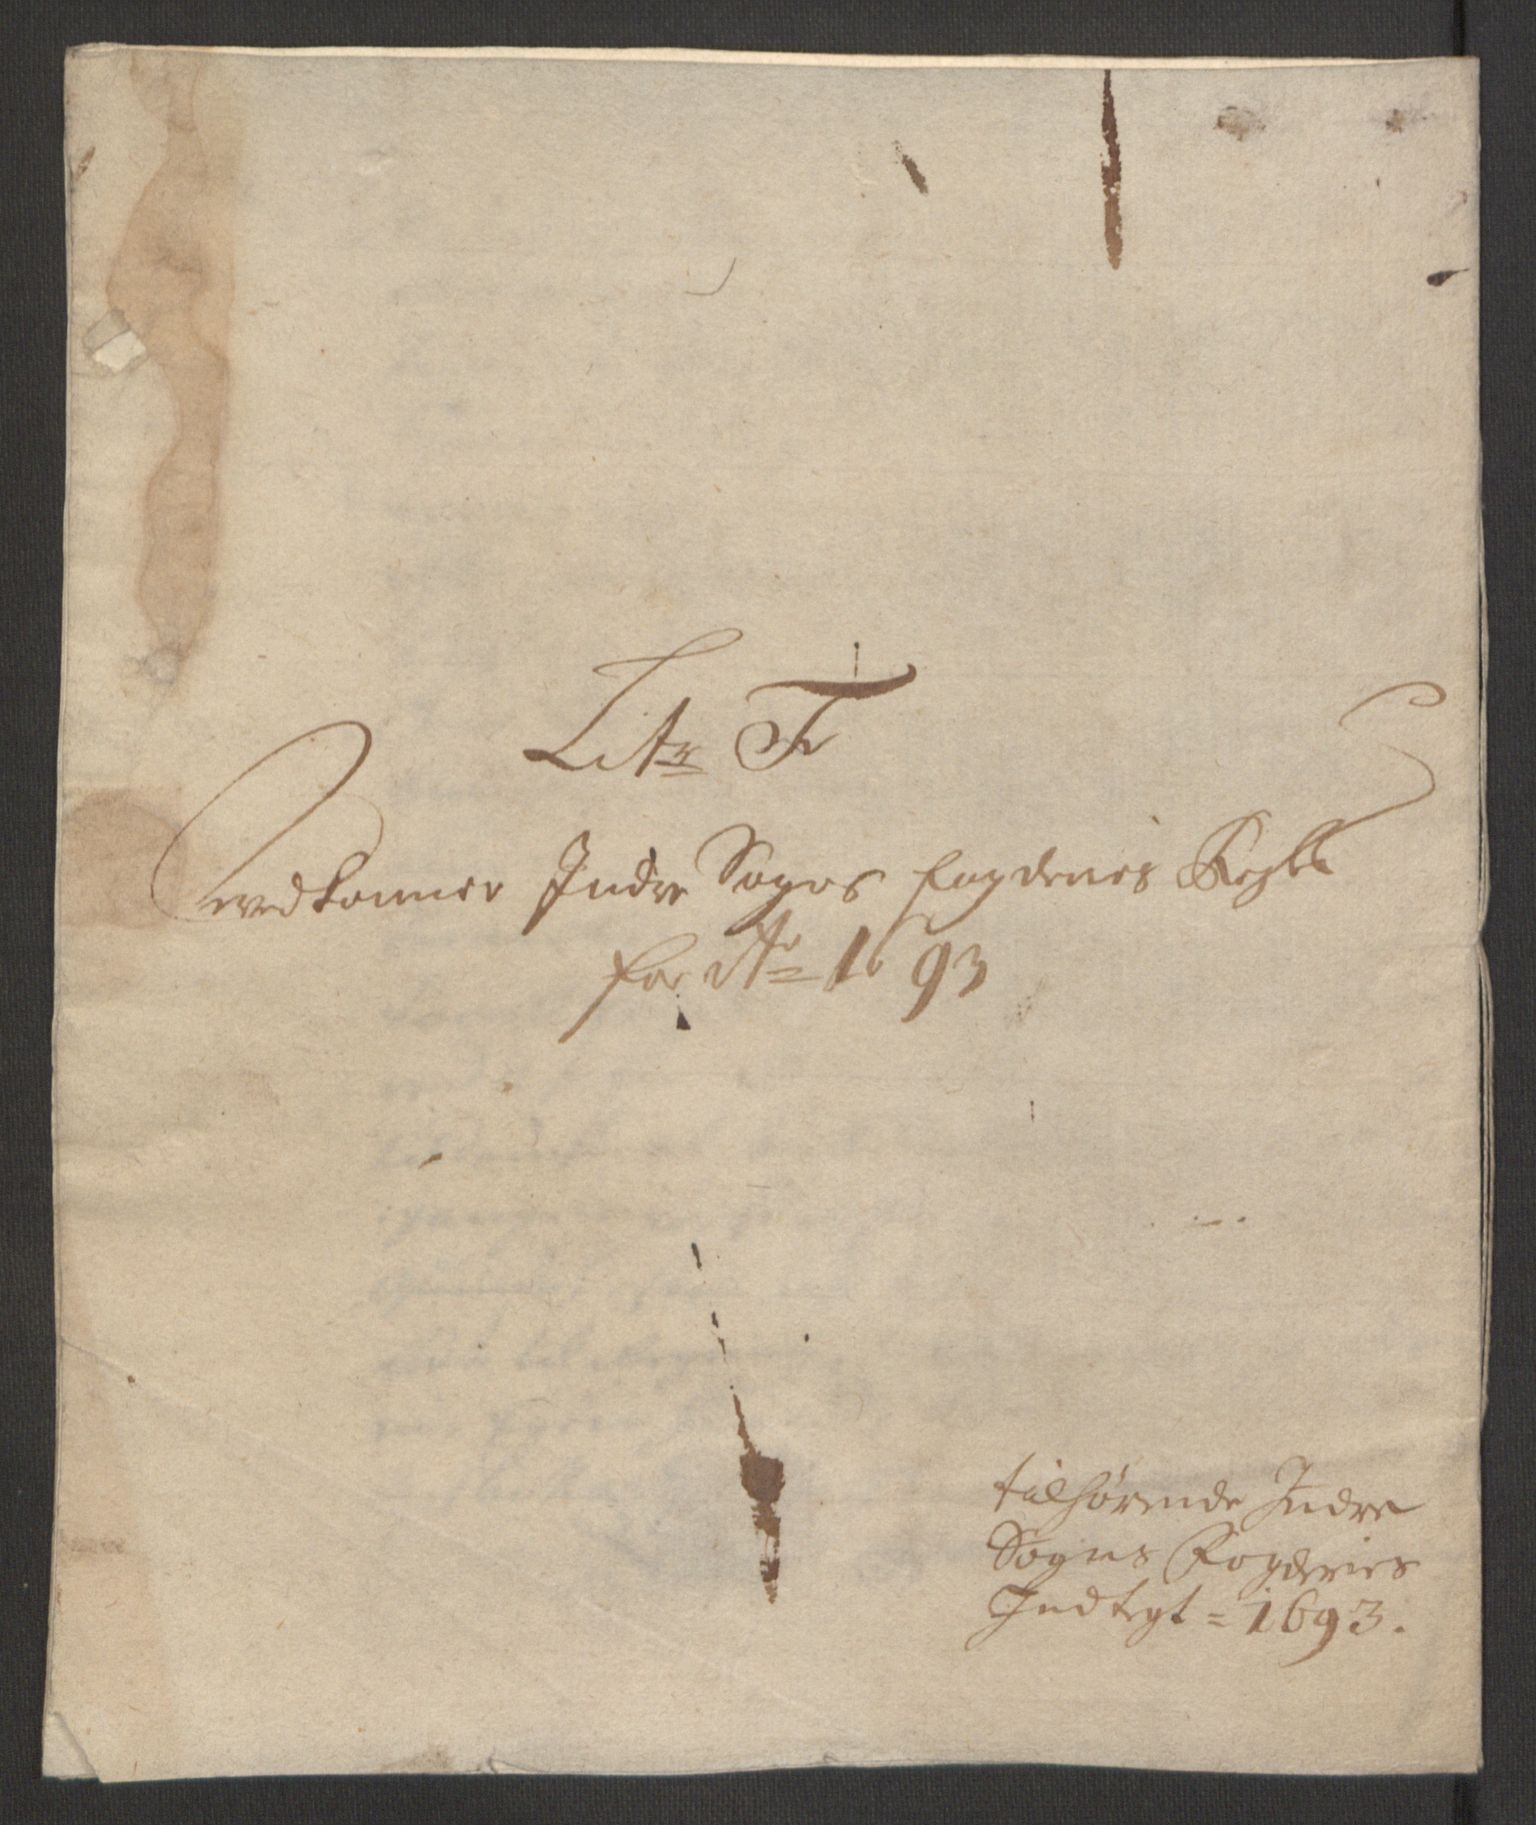 Litr F
Vedkommer Indre Sogns fogderies Regsk
for Ao 1693
tilhørende Indre
Sogns Fogderies
Indtegt = 1693.